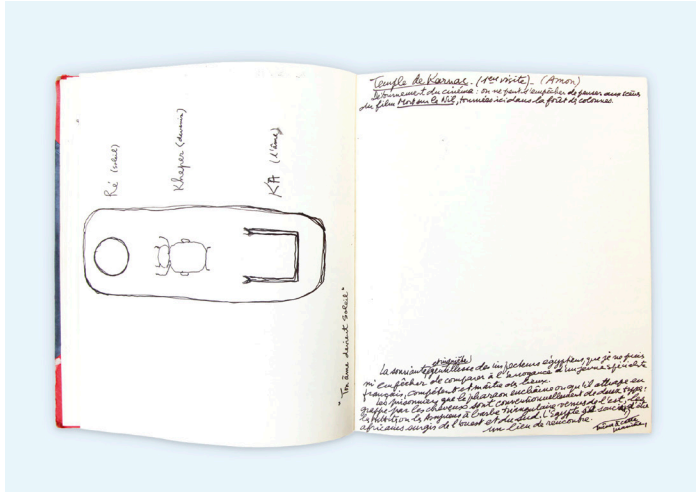 Ré (soleil)
Kheper (devenir)
KA (l'âme)
"Ton âme devient soleil"
Temple de Karnac - (1ère visite) - (Amon)
Détournement du cinéma : on ne peut s'empêcher de penser aux scènes
du film Mort sur le Nil, tournées ici dans la forêt de colonnes.
La souriante gentillesse des inspecteurs égyptiens, que je ne puis
m'empêcher de comparer à l'arrogance d'un jeune spécialiste
français, compétent et maître des lieux.
Les prisonniers que le pharaon enchaîne ou qu'il attrape en
grappe par les cheveux sont conventionnellement de deux types :
les à barbe triangulaire venus de l'est, les
africains surgis de l'ouest et du sud. L'Égypte
un lieu de rencontre.